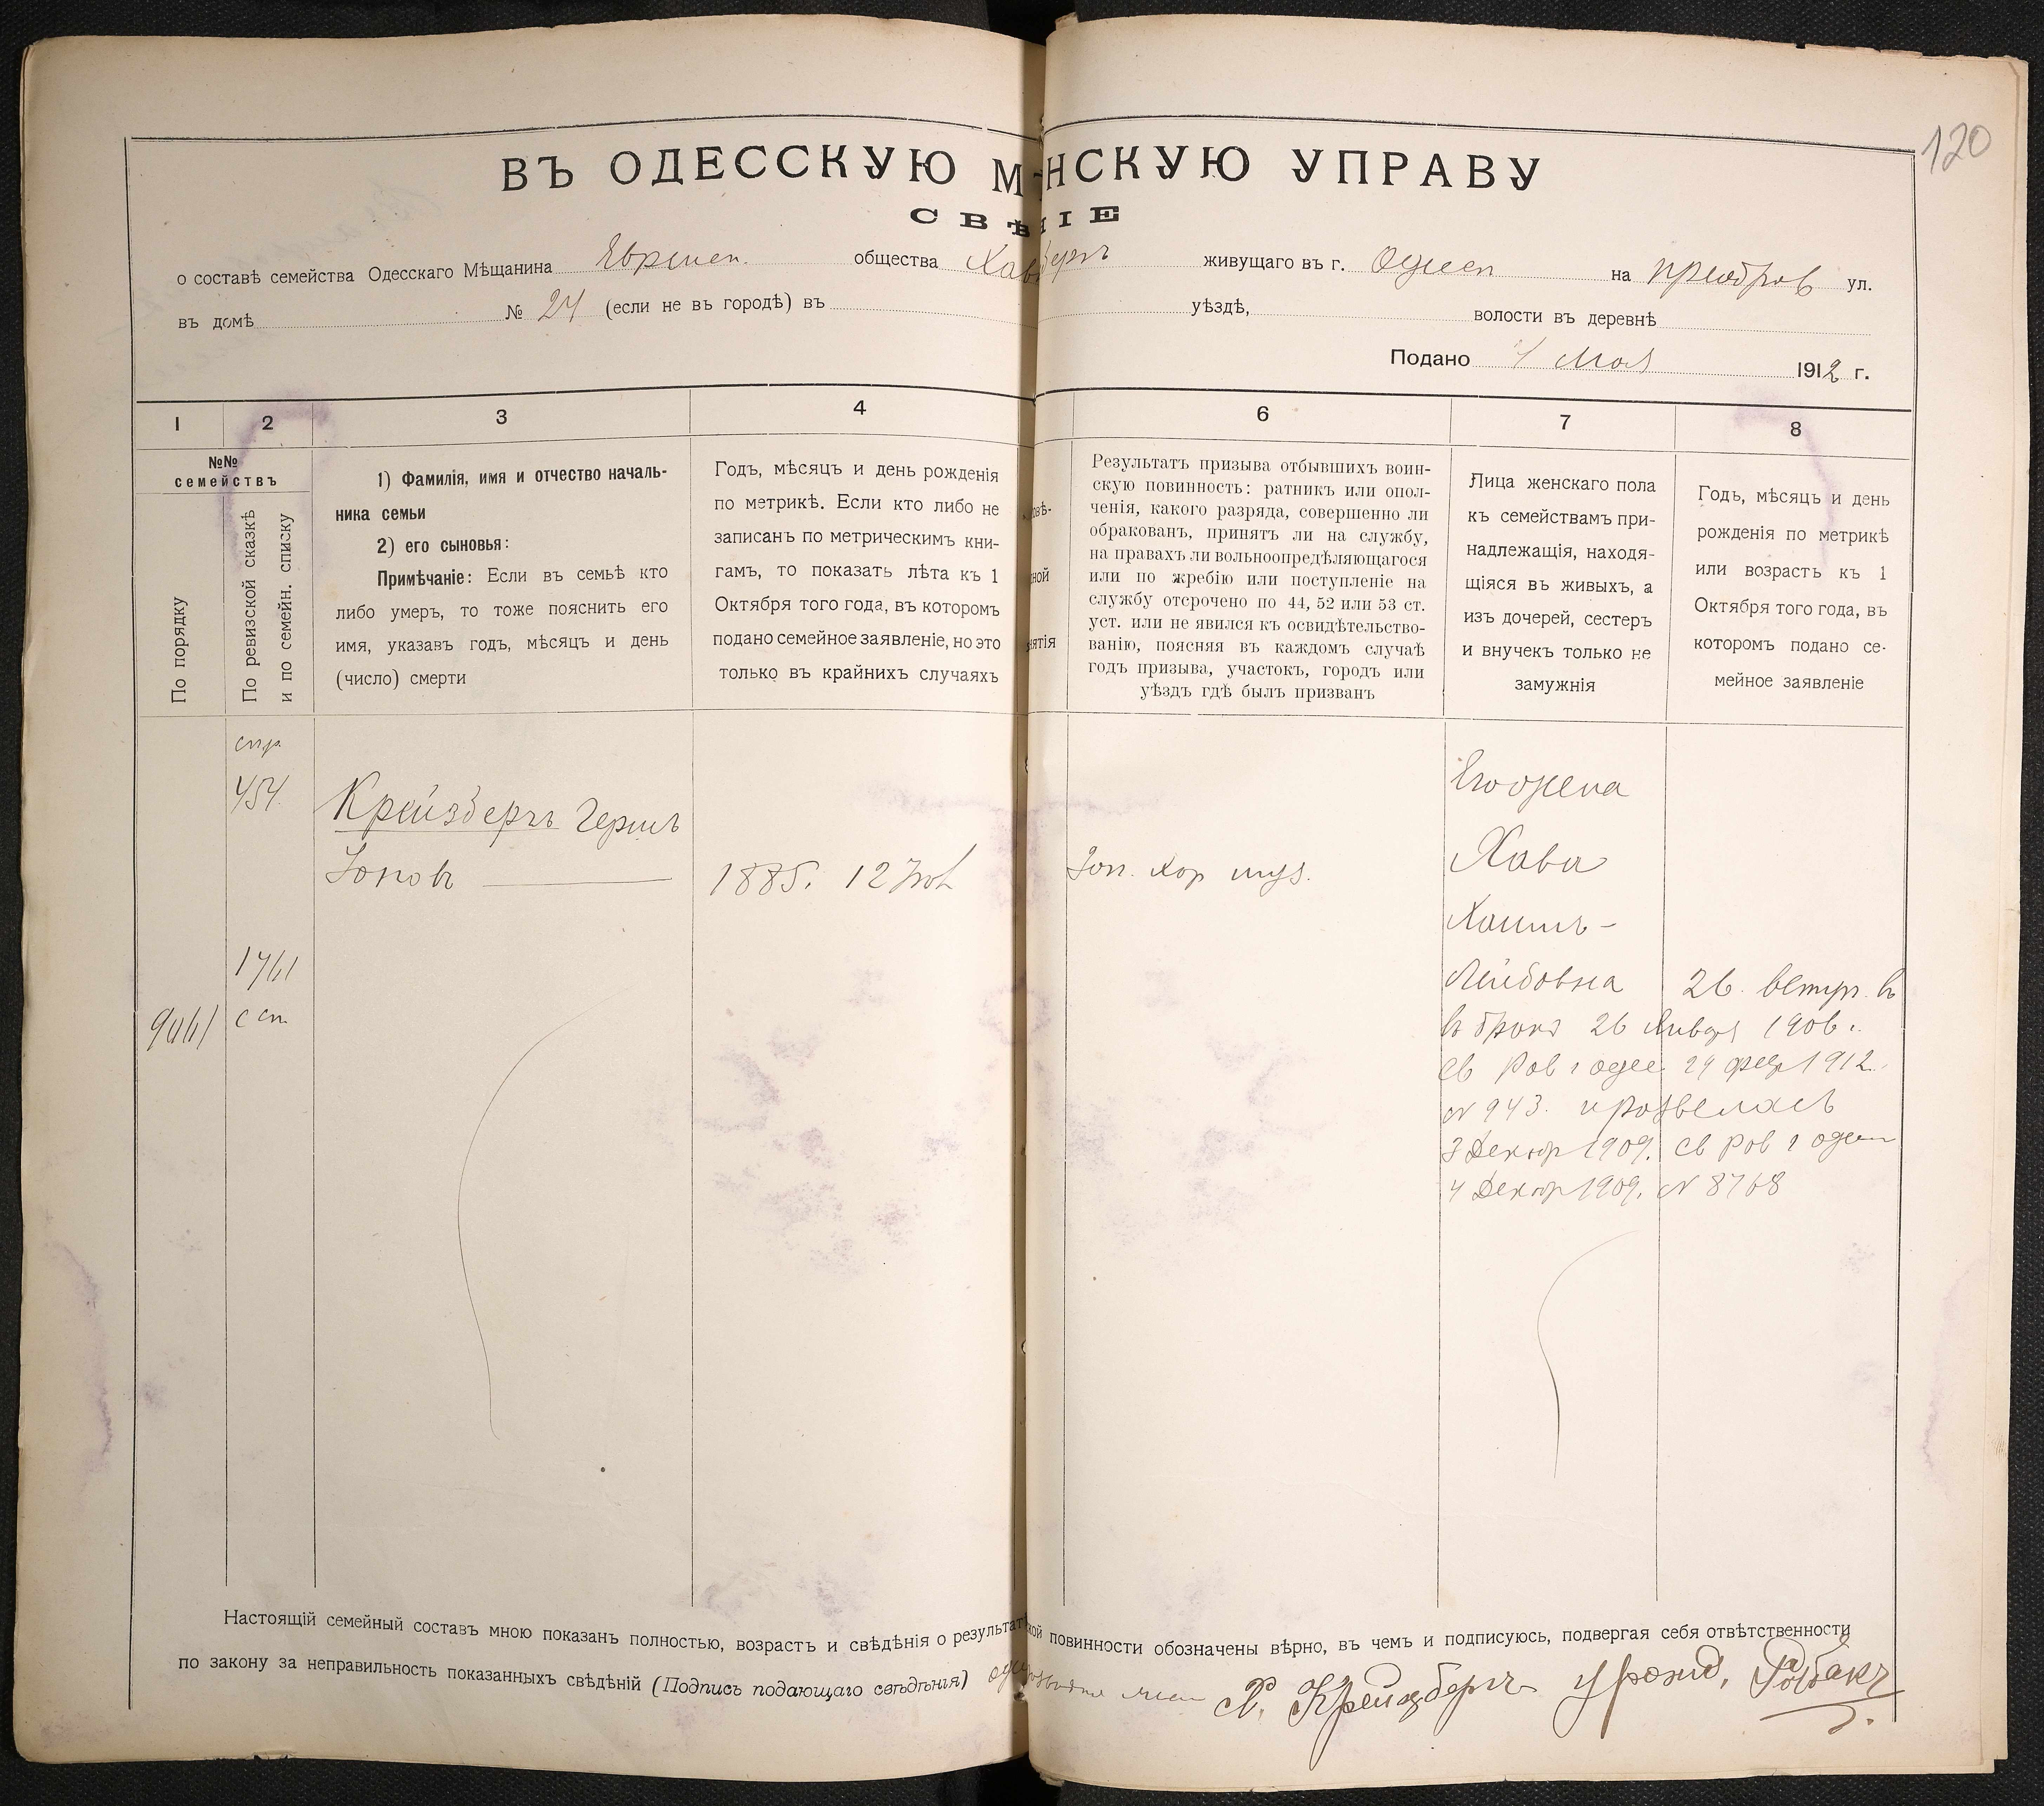 120
ВЪ ОДЕССКУЮ М НСКУЮ УПРАВУ
СВѢ НІЕ
о составѣ семейства Одесскаго Мѣщанина Еврейск. общества живущаго въ г. Одессѣ на Преобров ул.
въ домѣ № 24 (если не въ городѣ) въ уѣздѣ, волости въ деревнѣ
Подано 4 Мая 1912 г.
1 2 3 4 6 7 8
№№ семействъ
По порядку
По ревизской сказкѣ
и по семейн. списку
1) Фамилія, имя и отчество началь-
ника семьи
2) его сыновья:
Примѣчаніе: Если въ семьѣ кто
либо умеръ, то тоже пояснить его
имя, указавъ годъ, мѣсяцъ и день
(число) смерти
Годъ, мѣсяцъ и день рожденія
по метрикѣ. Если кто либо не
записанъ по метрическимъ кни-
гамъ, то показать лѣта къ 1
Октября того года, въ которомъ
подано семейное заявленіе, но это
только въ крайнихъ случаяхъ
Результатъ призыва отбывшихъ воин-
скую повинность: ратникъ или опол-
ченія, какого разряда, совершенно ли
обракованъ, принятъ ли на службу,
на правахъ ли вольноопредѣляющагося
или по жребію или поступленіе на
службу отсрочено по 44, 52 или 53 ст.
уст. или не явился къ освидѣтельство-
ванію, поясняя въ каждомъ случаѣ
годъ призыва, участокъ, городъ или
уѣздъ гдѣ былъ призванъ
Лица женскаго пола
къ семействамъ при-
надлежащія, находя-
щіяся въ живыхъ, а
изъ дочерей, сестеръ
и внучекъ только не
замужнія
Годъ, мѣсяцъ и день
рожденія по метрикѣ
или возрастъ къ 1
Октября того года, въ
которомъ подано се-
мейное заявленіе
стр
454
Крейзбергъ Гершъ
Іоновъ 1885. 12
Его жена
Хава
Хаимъ-
1761
Лейбовна 26.
с сп.
въ бракѣ 26 Января 1906 г.
св Рав г одес 24 фев 1912.
№ 943. и развелась
3 Декабр 1909. св Рав г одес
4 Декабр 1909. № 8768
Настоящій семейный составъ мною показанъ полностью, возрастъ и свѣдѣнія о результат кой повинности обозначены вѣрно, въ чемъ и подписуюсь, подвергая себя отвѣтственности
по закону за неправильность показанныхъ свѣдѣній (Подпись подающаго свѣдѣнія) Х. Крейцбергъ урожд. Ройбакъ